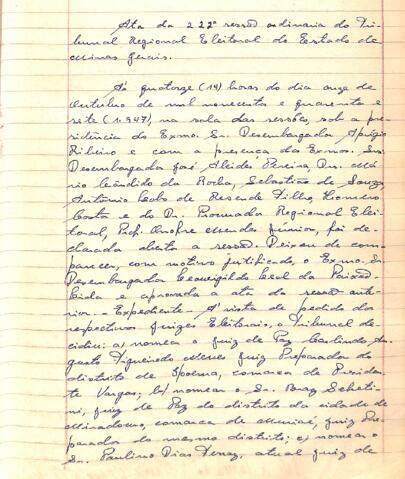 Ata da 222ª sessão ordinaria do Tri-
bunal Regional Eleitoral do Estado de
Minas Gerais.
Ás quatorze (14) horas do dia onze de
Outubro de mil novecentos e quarenta e
sete (1.947), na sala das sessões, sob a pre-
sidência do Exmo. Sr. Desembargador Aprigio
Ribeiro e com a presença dos Exmos. Srs.
Desembargador José Alcides Pereira, Drs. Má-
rio Cândido da Rocha, Sebastião de Souza,
Antônio Pedro de Resende Filho,
Costa e do Dr. Procurador Regional Elei-
toral, Prof. Onofre Mendes Júnior, foi de-
clarada aberta a sessão. Deixou de com-
parecer, com motivo justificado, o Exmo. Sr.
Desembargador Leovigildo Leal da Paixão.
Lida e aprovada a ata da sessão ante-
rior. - Expediente - Á vista de pedido dos
respectivos Juizes Eleitorais, o Tribunal de-
cidiu: a) nomear o Juiz de Paz
Figueiredo Juiz Preparador do
distrito de Ipoema, comarca de Presiden-
te Vargas; b) nomear o Sr. Braz Scheti-
ni, Juiz de Paz do distrito da cidade de
Miradouro, comarca de Muriaé, Juiz Pre-
parador do mesmo distrito; c) nomear o
Sr. Paulino Dias atual Juiz de